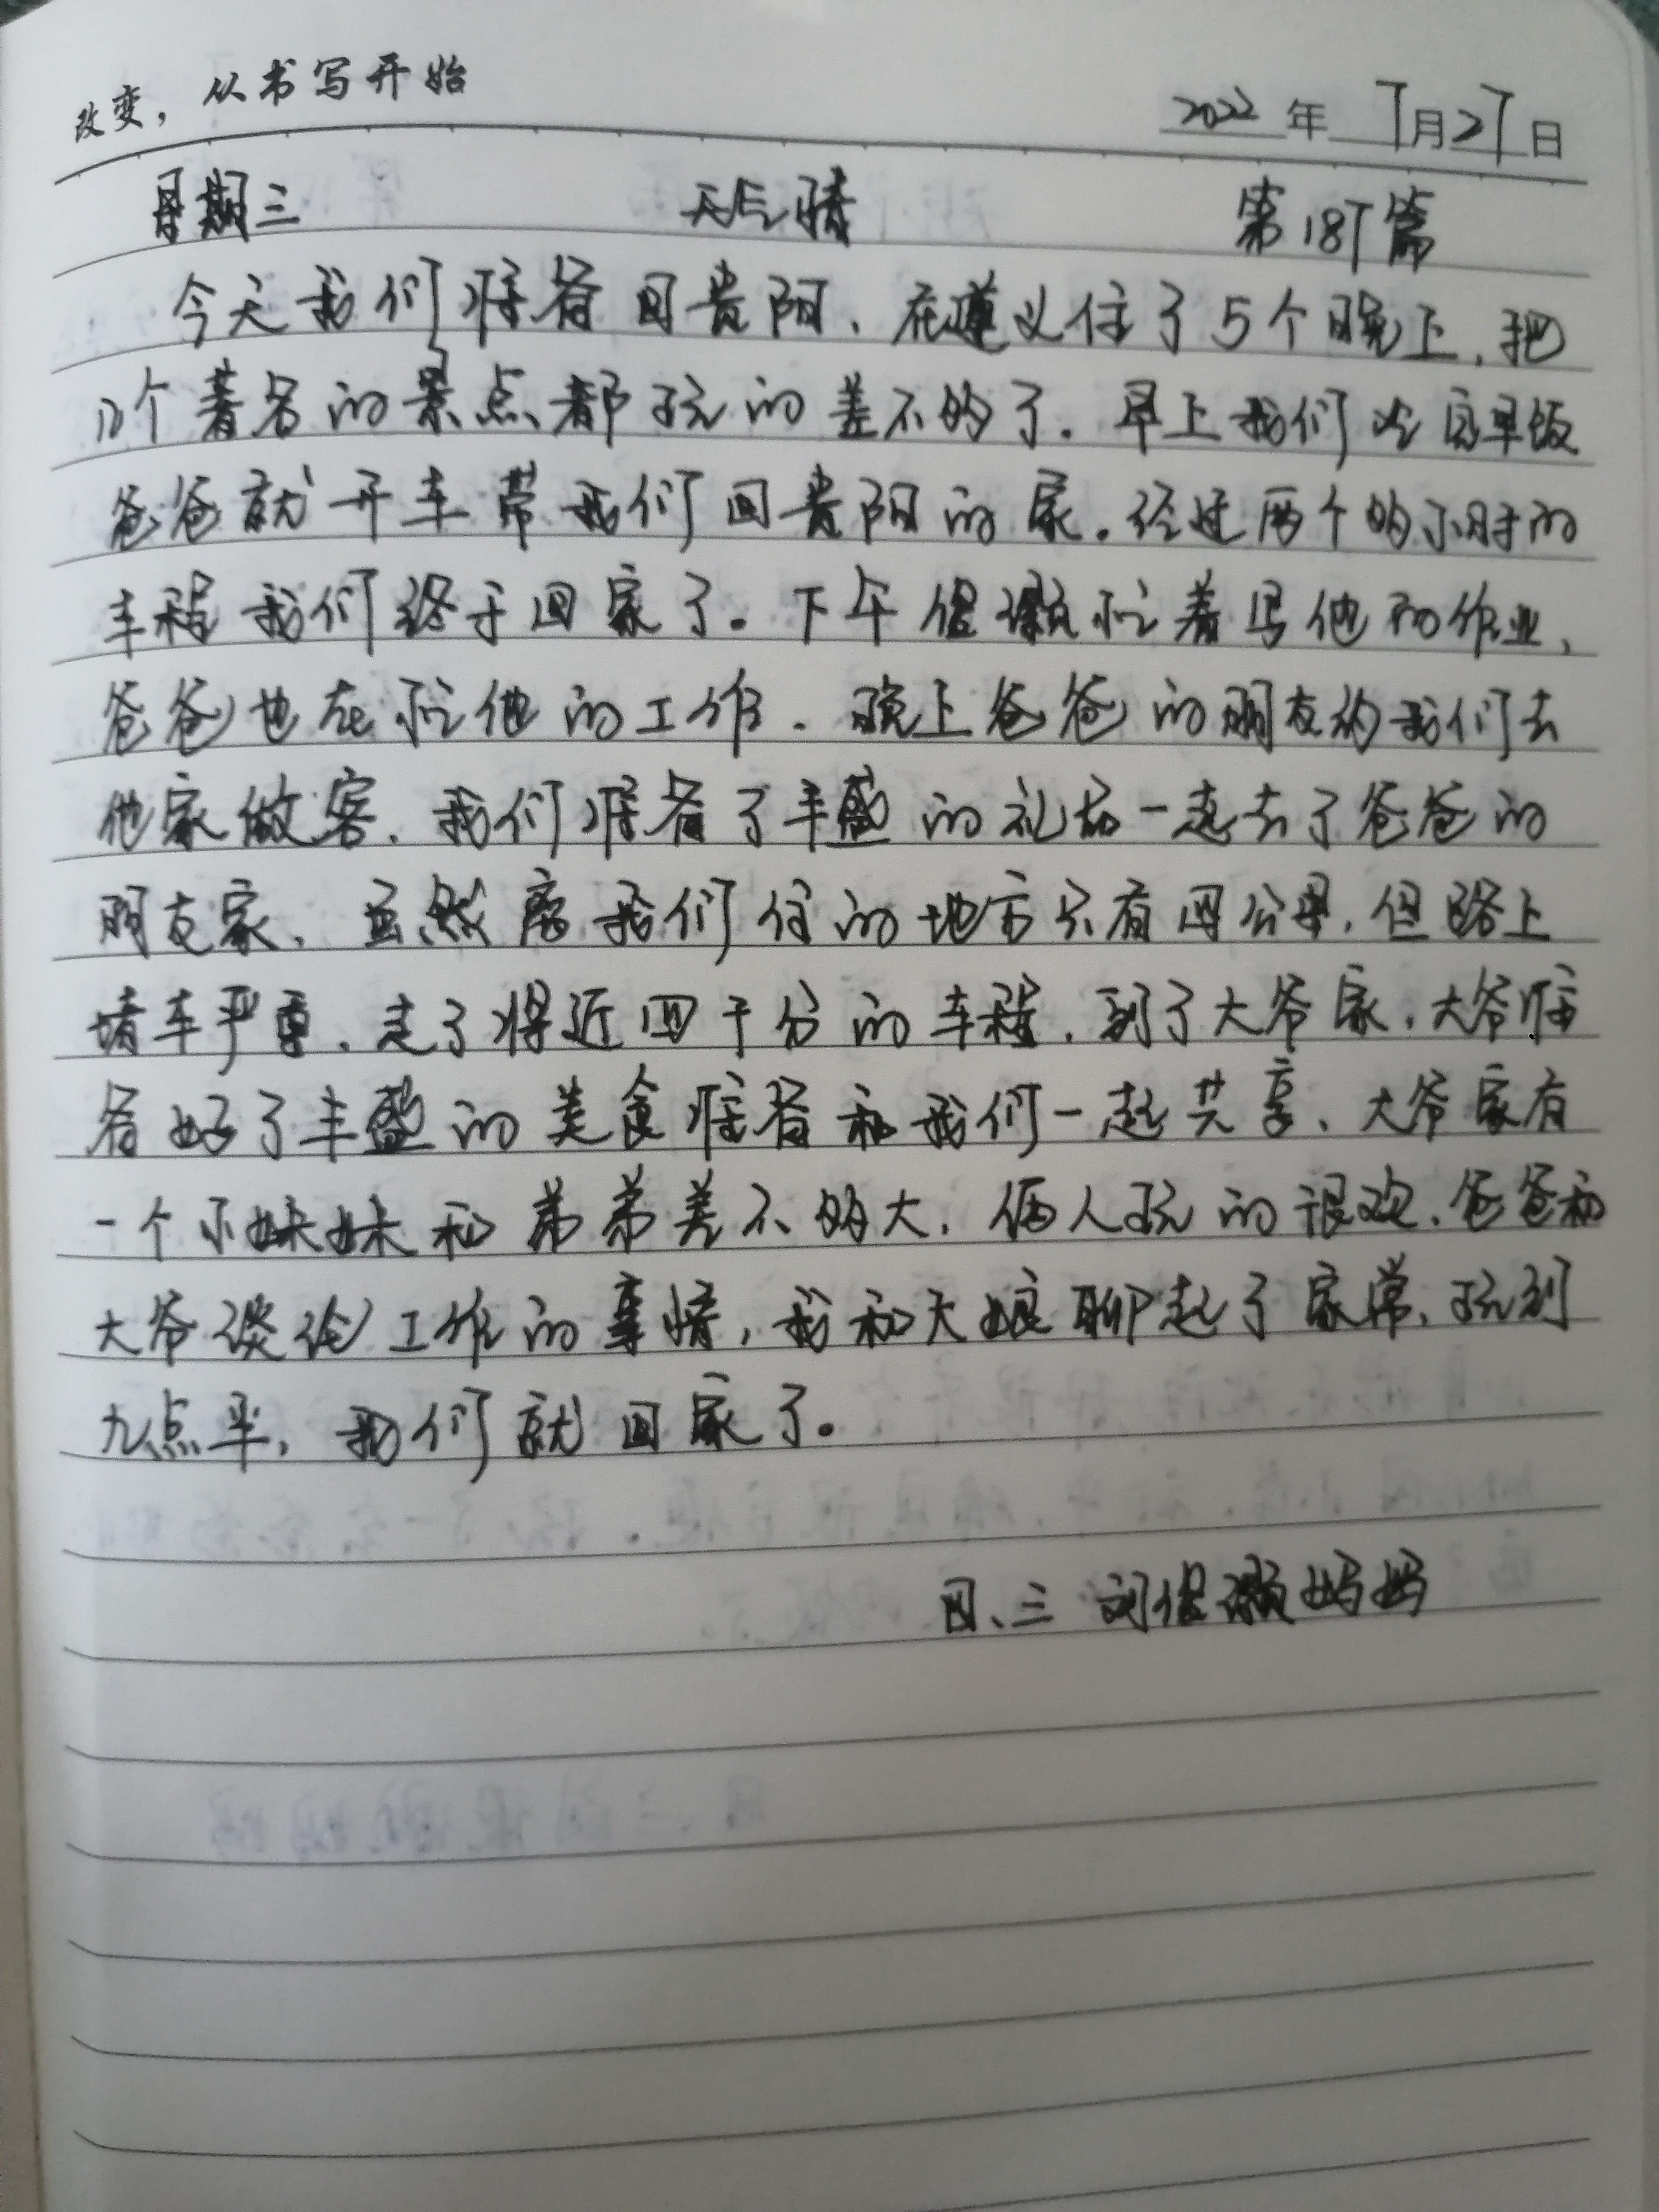 改变，从书写开始
2022年7月27日
星期三 天气晴 第187篇
今天我们准备回贵阳、在遵义住了5个晚上，把
几个著名的景点都玩的差不多了。早上我们吃完早饭
爸爸就开车带我们回贵阳的家。经过两个多小时的
车程我们终于回家了。下午俍灏忙着写他的作业，
爸爸也在忙他的工作．晚上爸爸的朋友约我们去
他家做客．我们准备了丰盛的礼品一起去了爸爸的
朋友家、虽然离我们住的地方只有四公里，但路上
堵车严重、走了将近四十分的车程．到了大爷家，大爷准
备好了丰盛的美食准备和我们一起共享、大爷家有
一个小妹妹和弟弟差不多大，俩人玩的很欢．爸爸和
大爷谈论工作的事情，我和大娘聊起了家常．玩到
九点半，我们就回家了。
四、三 刘俍灏妈妈